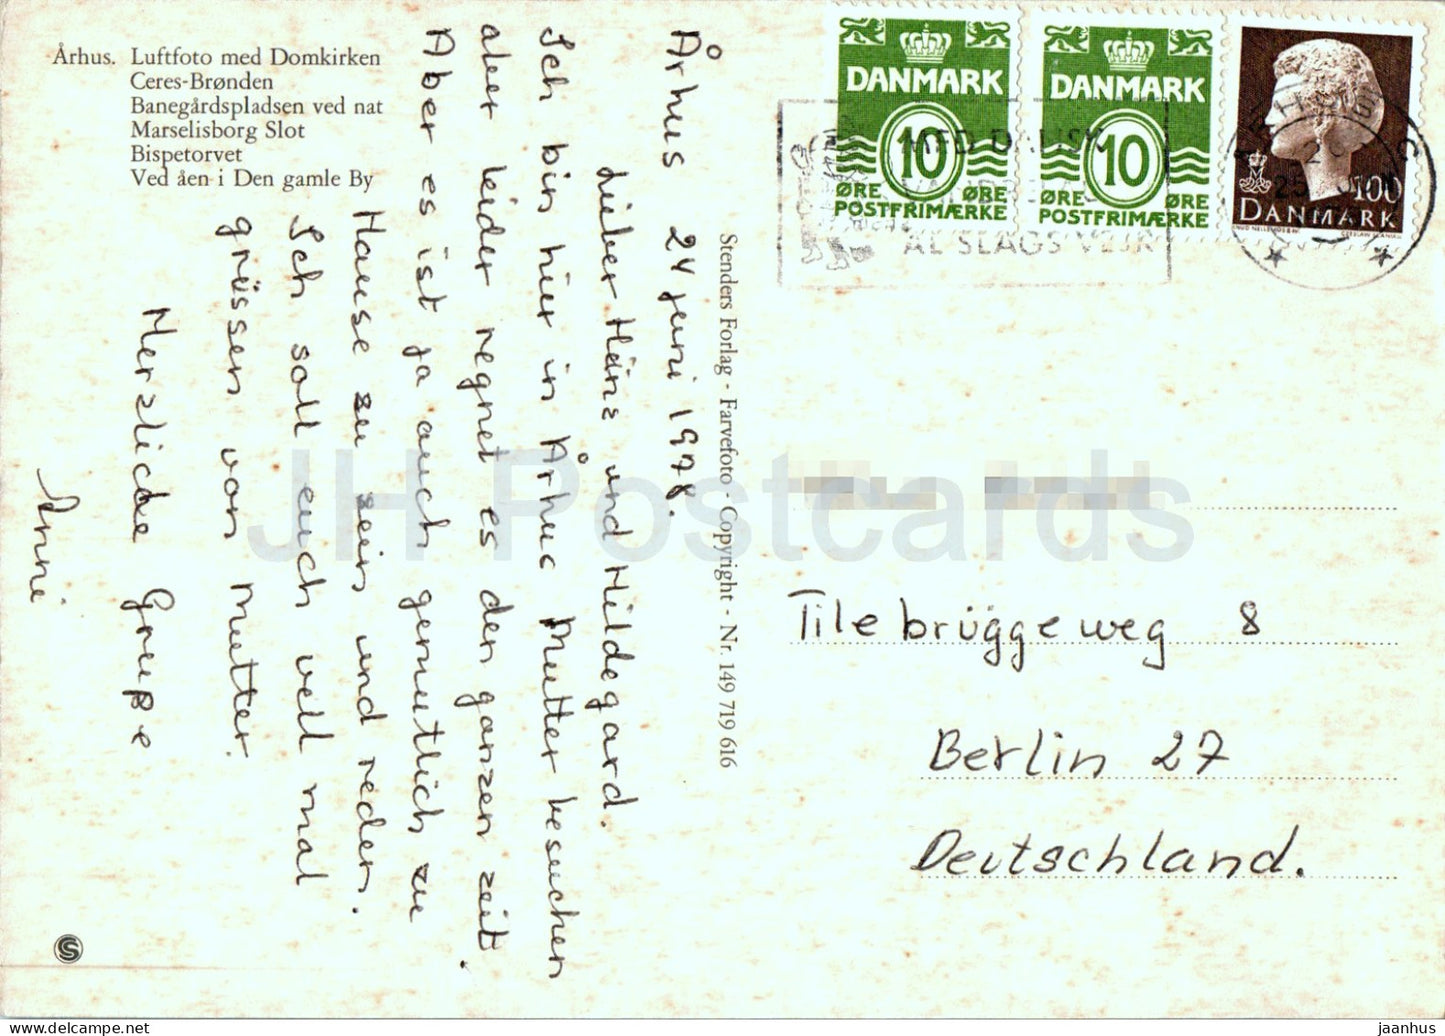 Århus. Luftfoto med Domkirken
Ceres-Brønden
Banegårdspladsen ved nat
Marselisborg Slot
Bispetorvet
Ved åen i Den gamle By
Århus 24 juni 1978.
Lieber Häns und Hildegard.
Ich bin hier in Århus Mutter besuchen
aber leider regnet es den ganzen zeit.
Aber es ist ja auch gemutlich zu
Hause zu sein und reden.
Ich soll euch vell mal
grüssen von Mutter.
Herzliche Grupe
Anni
Stenders Forlag - Farvefoto - Copyright - Nr. 149 719 616
DANMARK
10
ØRE ØRE
POSTFRIMÆRKE
DANMARK
10
ØRE ØRE
POSTFRIMÆRKE
100
DANMARK
MED DANSK
AL SLAGS VEJR
Tilebrüggeweg 8
Berlin 27
Deutschland.
JH Postcards
jaanhus.com